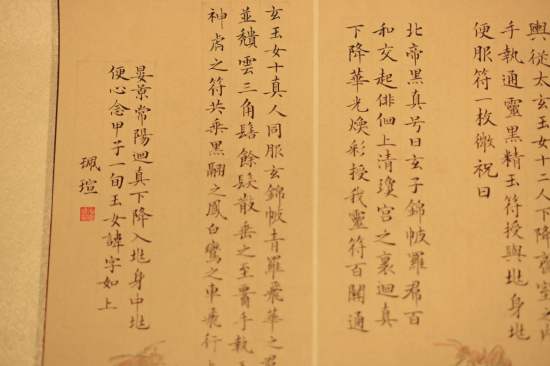 輿從太玄玉女十二人下降齋室之內
手執通靈黑精玉符授與兆身兆
便服符一枚微祝曰
北帝黑真号曰玄子錦帔羅帬百
和交起俳佪上清瓊宮之裏迴真
下降華光煥彩授我靈符百關通
玄玉女十真人同服玄錦帔青羅飛華之帬
並穨雲三角髻餘髮散垂之至手執
神虎之符共乘黑翮之鳳白鸞之車飛行
晏景常陽迴真下降入兆身中兆
便心念甲子一旬玉女諱字如上
珮瑄